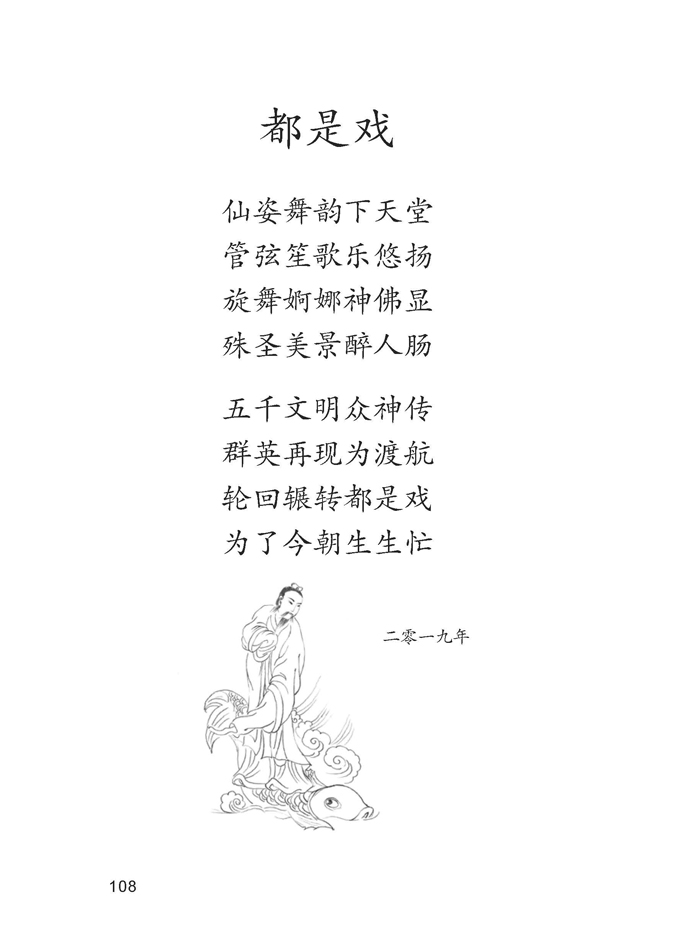 都是戏
仙姿舞韵下天堂
管弦笙歌乐悠扬
旋舞婀娜神佛显
殊圣美景醉人肠
五千文明众神传
群英再现为渡航
轮回辗转都是戏
为了今朝生生忙
二零一九年
108